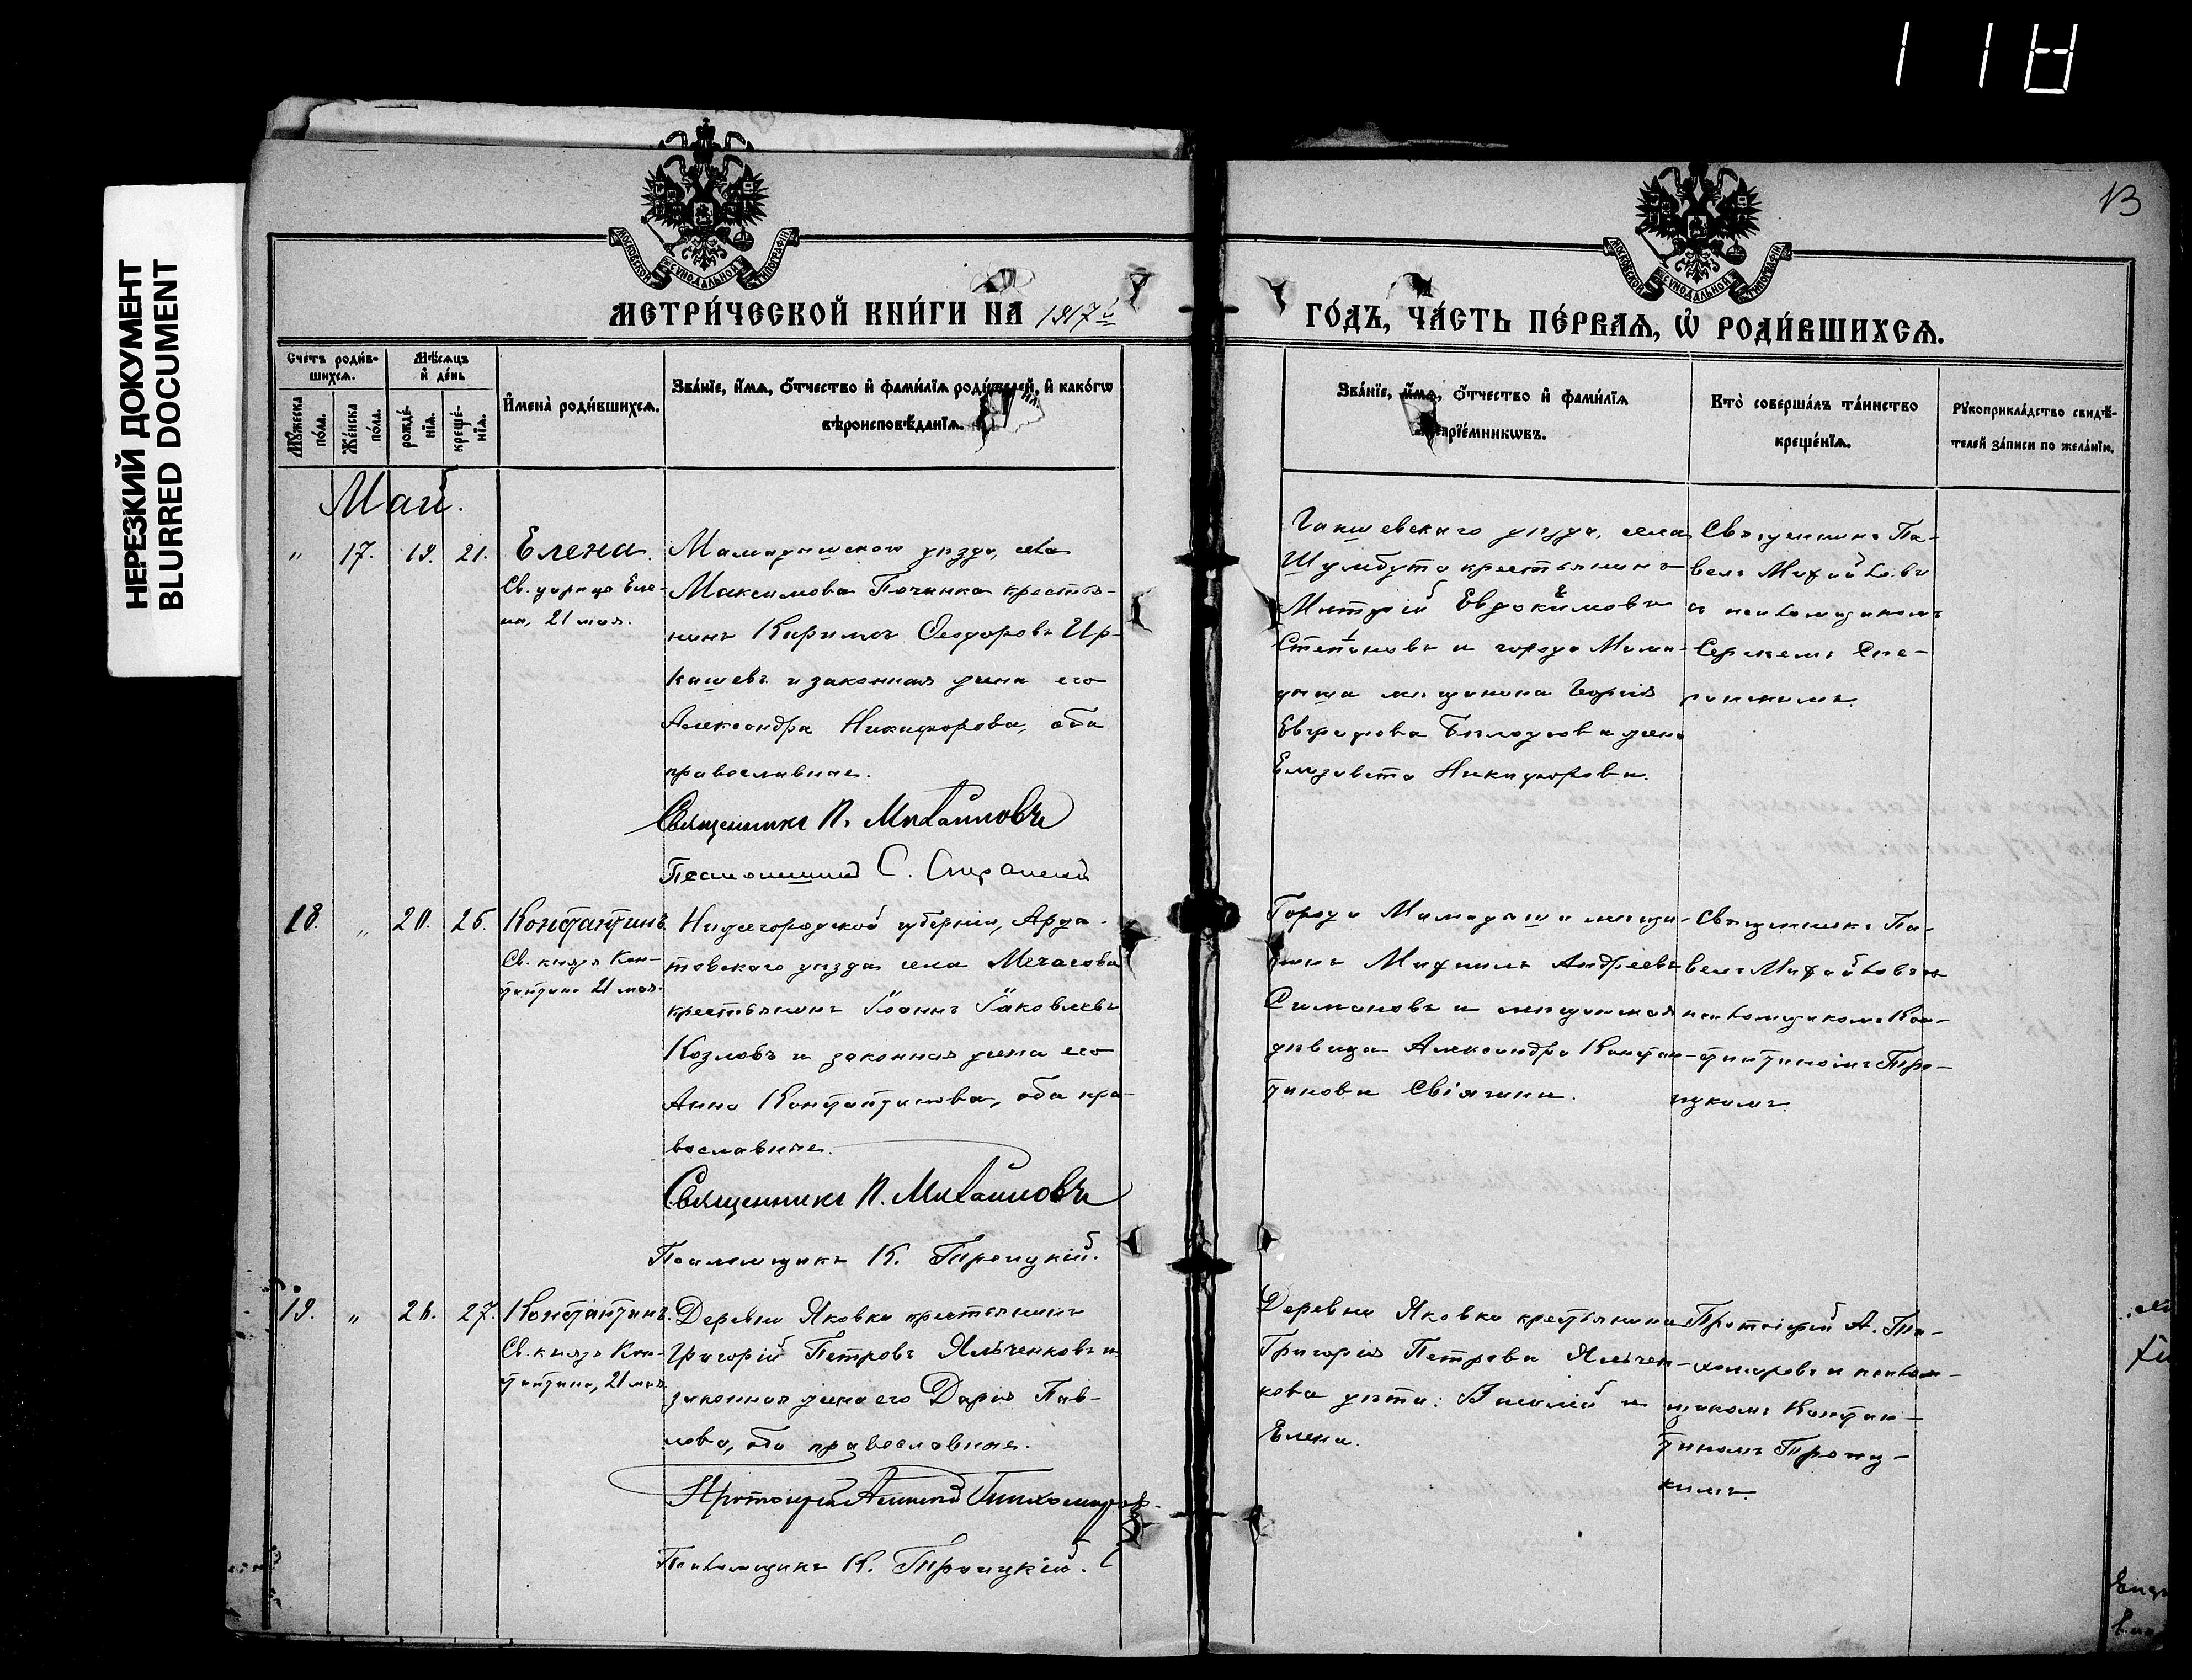 118
13
НЕРЕЗКИЙ ДОКУМЕНТ
BLURRED DOCUMENT
МОСКОВСКОЙ СѴНОДАЛЬНОЙ ТИПОГРАФІИ
МОСКОВСКОЙ СѴНОДАЛЬНОЙ ТИПОГРАФІИ
МЕТРИ́ЧЕСКОЙ КНИ́ГИ НА 1917 й
ГО́ДЪ, ЧА́СТЬ ПЕ́РВАѦ, Ѡ҆ РОДИ́ВШИХСѦ.
Сче́тъ роди́в-
шихсѧ.
Мѣ́сѧцъ
и҆ де́нь
Мꙋ́жеска
по́ла.
Же́нска
по́ла.
рожде́-
нїѧ.
креще́-
нїѧ.
И҆мена̀ роди́вшихсѧ.
Зва́нїе, и҆́мѧ, ѻ҆́тчество и҆ фами́лїѧ роди́телей, и҆ како́гѡ
вѣроисповѣ́данїѧ.
Зва́нїе, и҆́мѧ, ѻ҆́тчество и҆ фами́лїѧ
прїе́мникѡвъ.
Кто̀ соверша́лъ та́инство
креще́нїѧ.
Рꙋкоприкла́дство свидѣ́-
телей за́писи по жела́нїю.
Май.
" 17. 19. 21. Елена.
Св. царица Еле-
на, 21 мая.
Мамадышскаго уѣзда, села
Максимова Починка крестья-
нинъ Кириллъ Ѳеодоровъ Ир-
кашевъ и законная жена его
Александра Никифорова, оба
православные.
Священникъ П. Михайловъ
Псаломщикъ С. Сперанскій
уѣзда, села
Шумбута крестьянинъ
Митрій Евдокимовъ
Степановъ и города Мама-
дыша мѣщанина Георгія
жена
Елизавета Никифорова.
Священникъ Па-
велъ Михайловъ
съ псаломщикомъ
Сергіемъ Спе-
ранскимъ.
18. " 20. 25. Константинъ
Св. князя Кон-
стантина 21 мая.
Нижегородской губерніи, Арда-
товскаго уѣзда села Мечасова
крестьянинъ Іоаннъ Іаковлевъ
Козловъ и законная жена его
Анна Константинова, оба пра-
вославные.
Священникъ П. Михайловъ
Псаломщикъ К. Троицкій.
Города Мамадыша мѣща-
нинъ Михаилъ Андреевъ
Симановъ и мѣщанская
дѣвица Александра Констан-
тинова
Священникъ Па-
велъ Михайловъ и
псаломщикомъ Кон-
стантиномъ Тро-
ицкимъ.
19. " 26. 27. Константинъ.
Св. князя Кон-
стантина, 21 мая.
Деревни Яковки крестьянинъ
Григорій Петровъ Яльченковъ и
законная жена его Дарія Пав-
лова, оба православные.
Протоіерей Алексій Тихомировъ
Псаломщикъ К. Троицкій.
Деревни Яковки крестьянина
Григорія Петрова Яльчен-
кова дѣти: Василій и
Елена.
Протоіерей А. Ти-
хомировъ и псалом-
щикомъ Констан-
тиномъ Троиц-
кимъ.